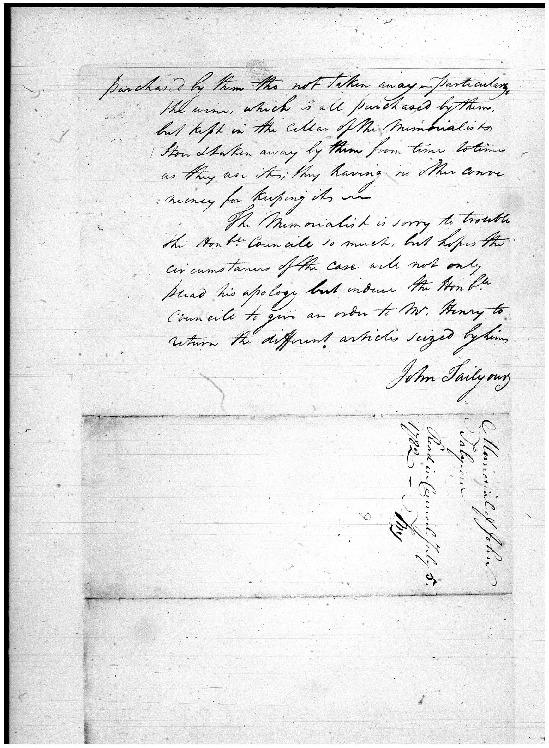 purchas'd by them tho not taken away - particularly
the wine, which is all purchased by them,
but kept in the Cellar of the Memorialists
House taken away by them from time to time
as they use it, they having no other conve
niency for keeping it
The Memorialist is sorry to trouble
the Honble Councile so much, but hopes the
circumstances of the case will not only
plead his apology but induce the Honble
Councile to give an order to Mr. Henry to
return the different articles seized by him
John Tailyour
Memorial of John
Talyour
Read in Council July 5.
1782